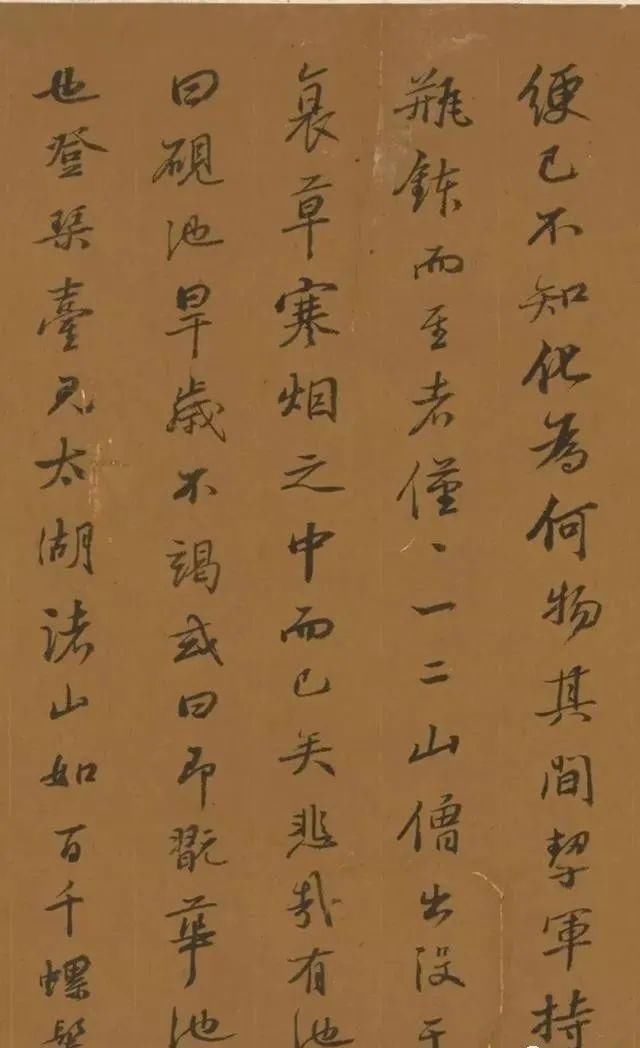 便已不知化為何物其間挈軍持
瓶鉢而至者僅〻一二山僧出沒于
衰草寒烟之中而已矣悲哉有池
曰硯池旱歲不竭或曰即翫華池
也登琴臺見太湖諸山如百千螺髻